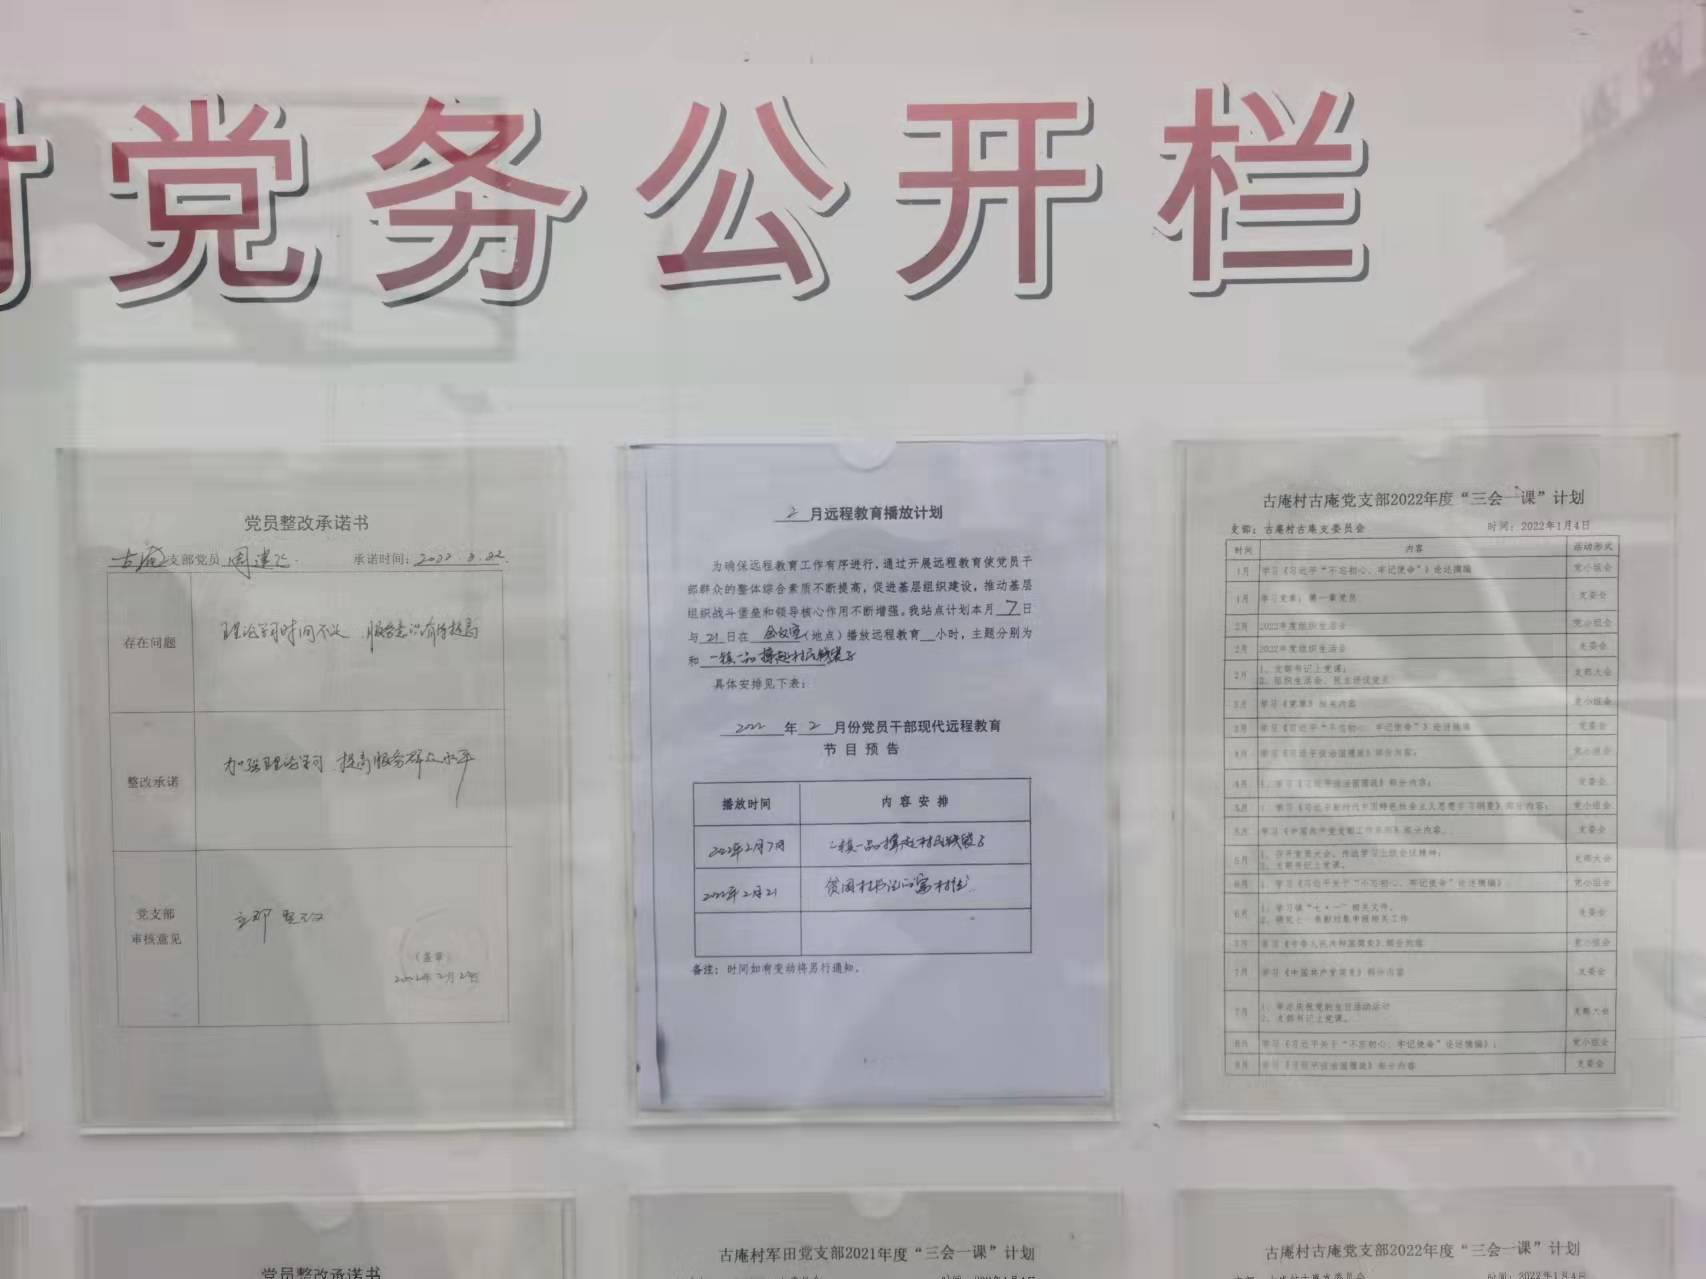 村党务公开栏
党员整改承诺书
古庵支部党员周建飞 承诺时间：2022
存在问题
理论学习时间不足 服务意识有待提高
整改承诺
加强理论学习 提高服务群众水平
党支部
审核意见
立即整改
（盖章）
2022年2月
2月远程教育播放计划
为确保远程教育工作有序进行，通过开展远程教育使党员干
部群众的整体综合素质不断提高，促进基层组织建设，推动基层
组织战斗堡垒和领导核心作用不断增强。我站点计划本月7日
与21日在会议室（地点）播放远程教育__小时，主题分别为
和一镇一品撑起村民钱袋子
具体安排见下表：
2022年2月份党员干部现代远程教育
节目预告
播放时间 内容安排
2022年2月7日 一镇一品撑起村民钱袋子
2022年2月21 贫困村
备注：时间如有变动将另行通知。
古庵村古庵党支部2022年度“三会一课”计划
支部：古庵村古庵支委员会 时间：2022年1月4日
时间 内容 活动形式
1月 学习《习近平“不忘初心、牢记使命”》论述摘编 党小组会
1月 学习党章：第一章党员 支委会
2月 2022年度组织生活会 党小组会
2月 2022年度组织生活会 支委会
2月 1、支部书记上党课； 支部大会
2、组织生活会、民主评议党员
3月 学习《党章》相关内容 党小组会
3月 学习《习近平“不忘初心、牢记使命”》论述摘编 支委会
4月 学习《习近平谈治国理政》部分内容； 党小组会
4月 1、学习《习近平谈治国理政》部分内容； 支委会
5月 学习《习近平新时代中国特色社会主义思想学习纲要》部分内容； 党小组会
5月 学习《中国共产党支部工作条例》部分内容。 支委会
5月 1、召开党员大会，传达学习上级会议精神； 支部大会
2、支部书记上党课。
6月 1、学习《习近平关于“不忘初心、牢记使命”论述摘编》 党小组会
6月 1、学习镇“七·一”相关文件。 支委会
2、研究七一表彰对象申报相关工作
7月 学习《中华人民共和国简史》部分内容 党小组会
7月 学习《中国共产党简史》部分内容 支委会
7月 1、举办庆祝党的生日活动 支部大会
2、支部书记上党课。
8月 学习《习近平关于“不忘初心、牢记使命”论述摘编》； 党小组会
8月 学习《习近平谈治国理政》部分内容 支委会
党员整改承诺书
古庵村军田党支部2021年度“三会一课”计划
古庵村古庵党支部2022年度“三会一课”计划